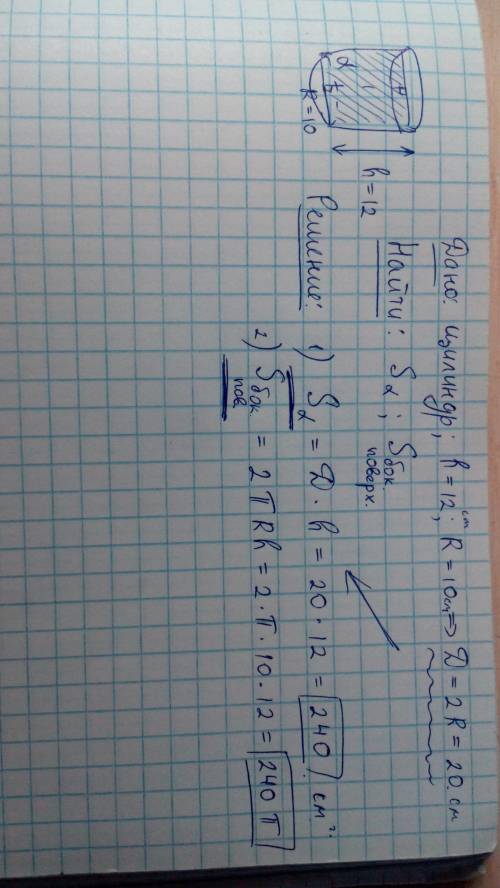 Дано: цилиндр; h = 12 см; R = 10 см => D = 2R = 20 см
Найти: Sα; Sбок. поверх.
h = 12
R = 10
α
Решение: 1) Sα = D · h = 20 · 12 = 240 см².
2) Sбок пов = 2πRh = 2 · π · 10 · 12 = 240π